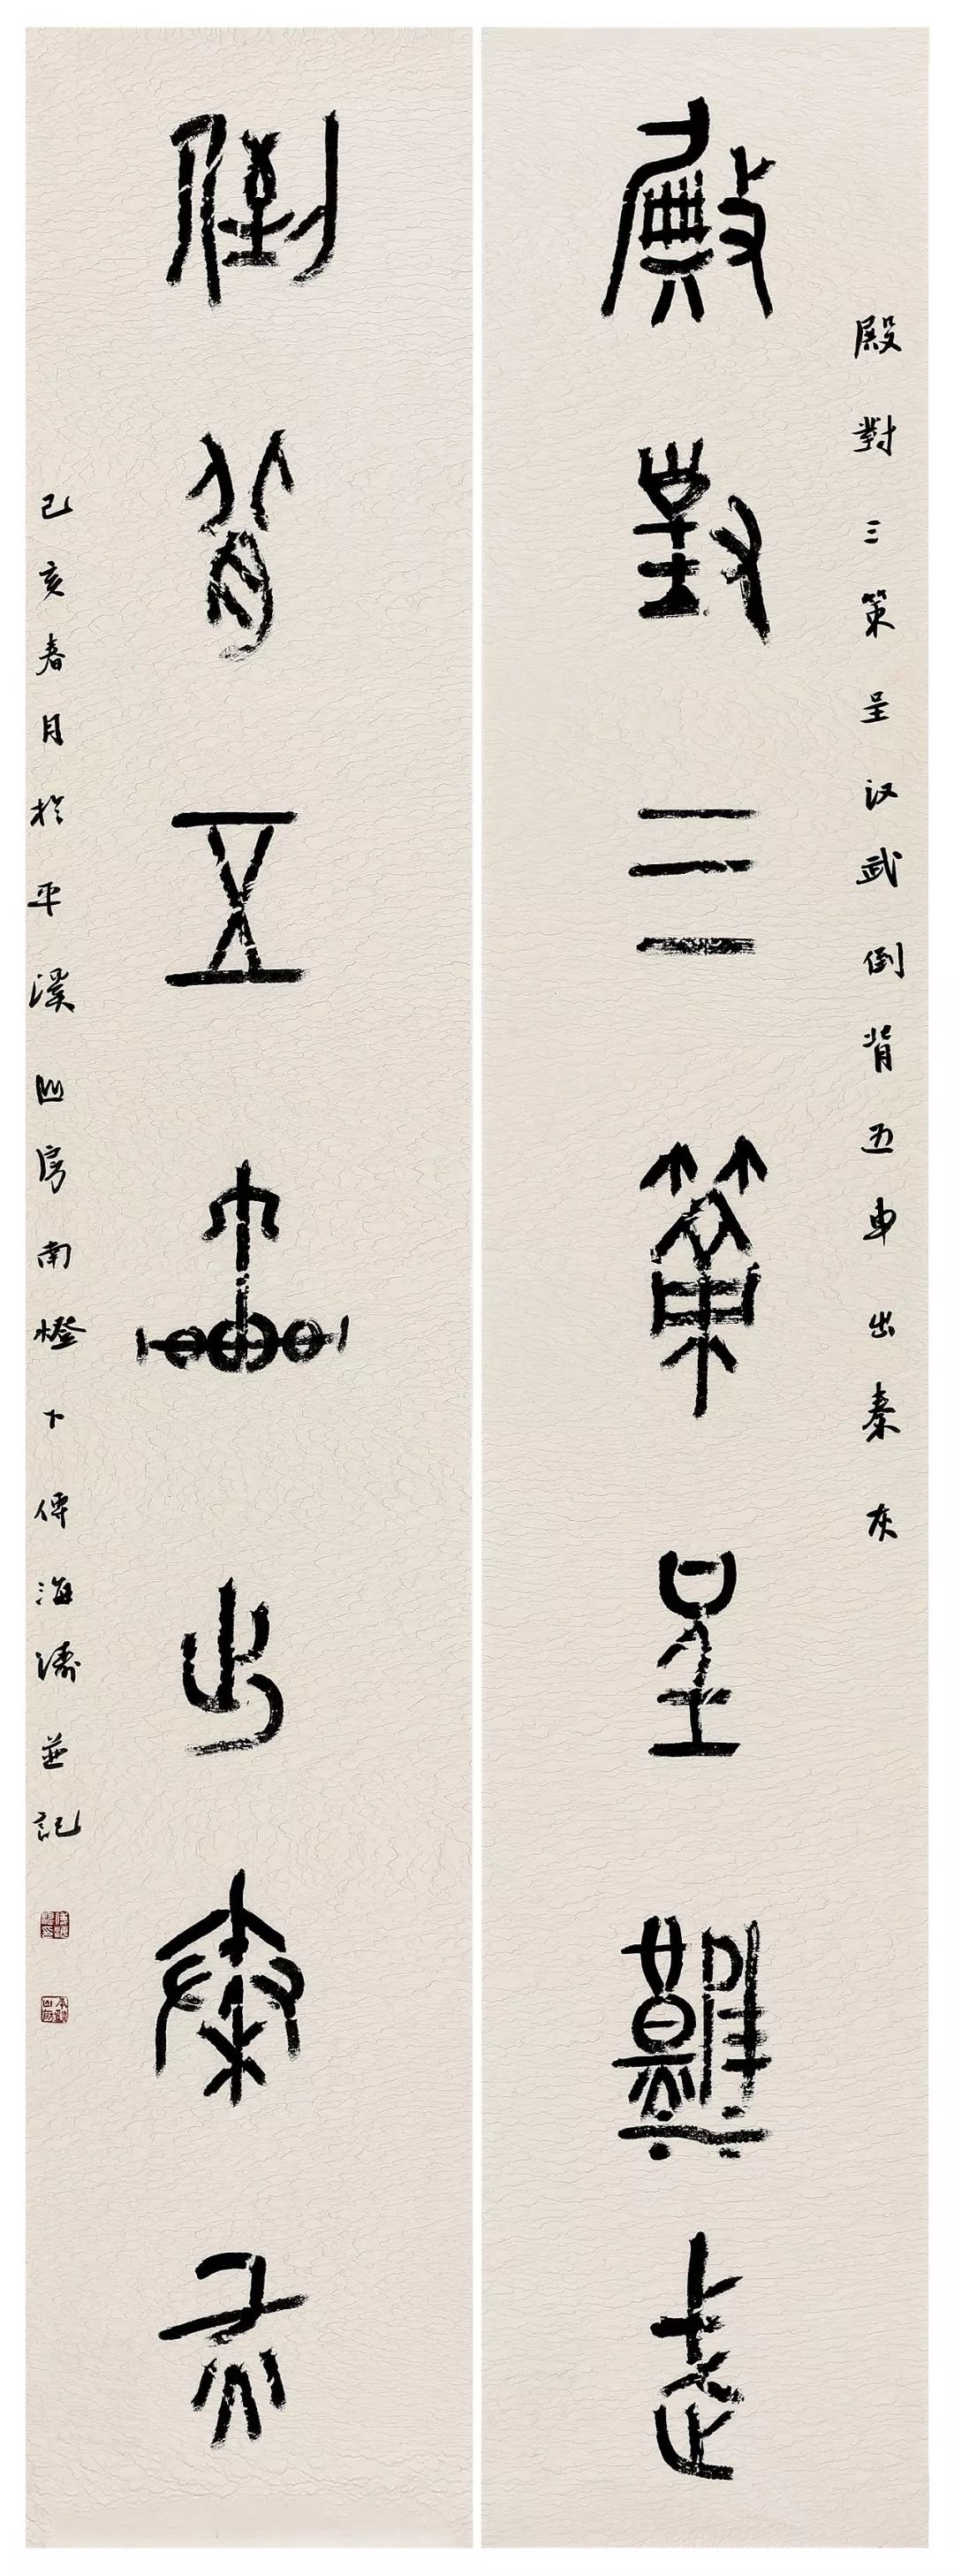 殿對三策呈漢武
殿對三策呈汉武倒背五車出秦灰
倒背五車出秦灰
己亥春月於平溪山房南燈下傅海濤並記